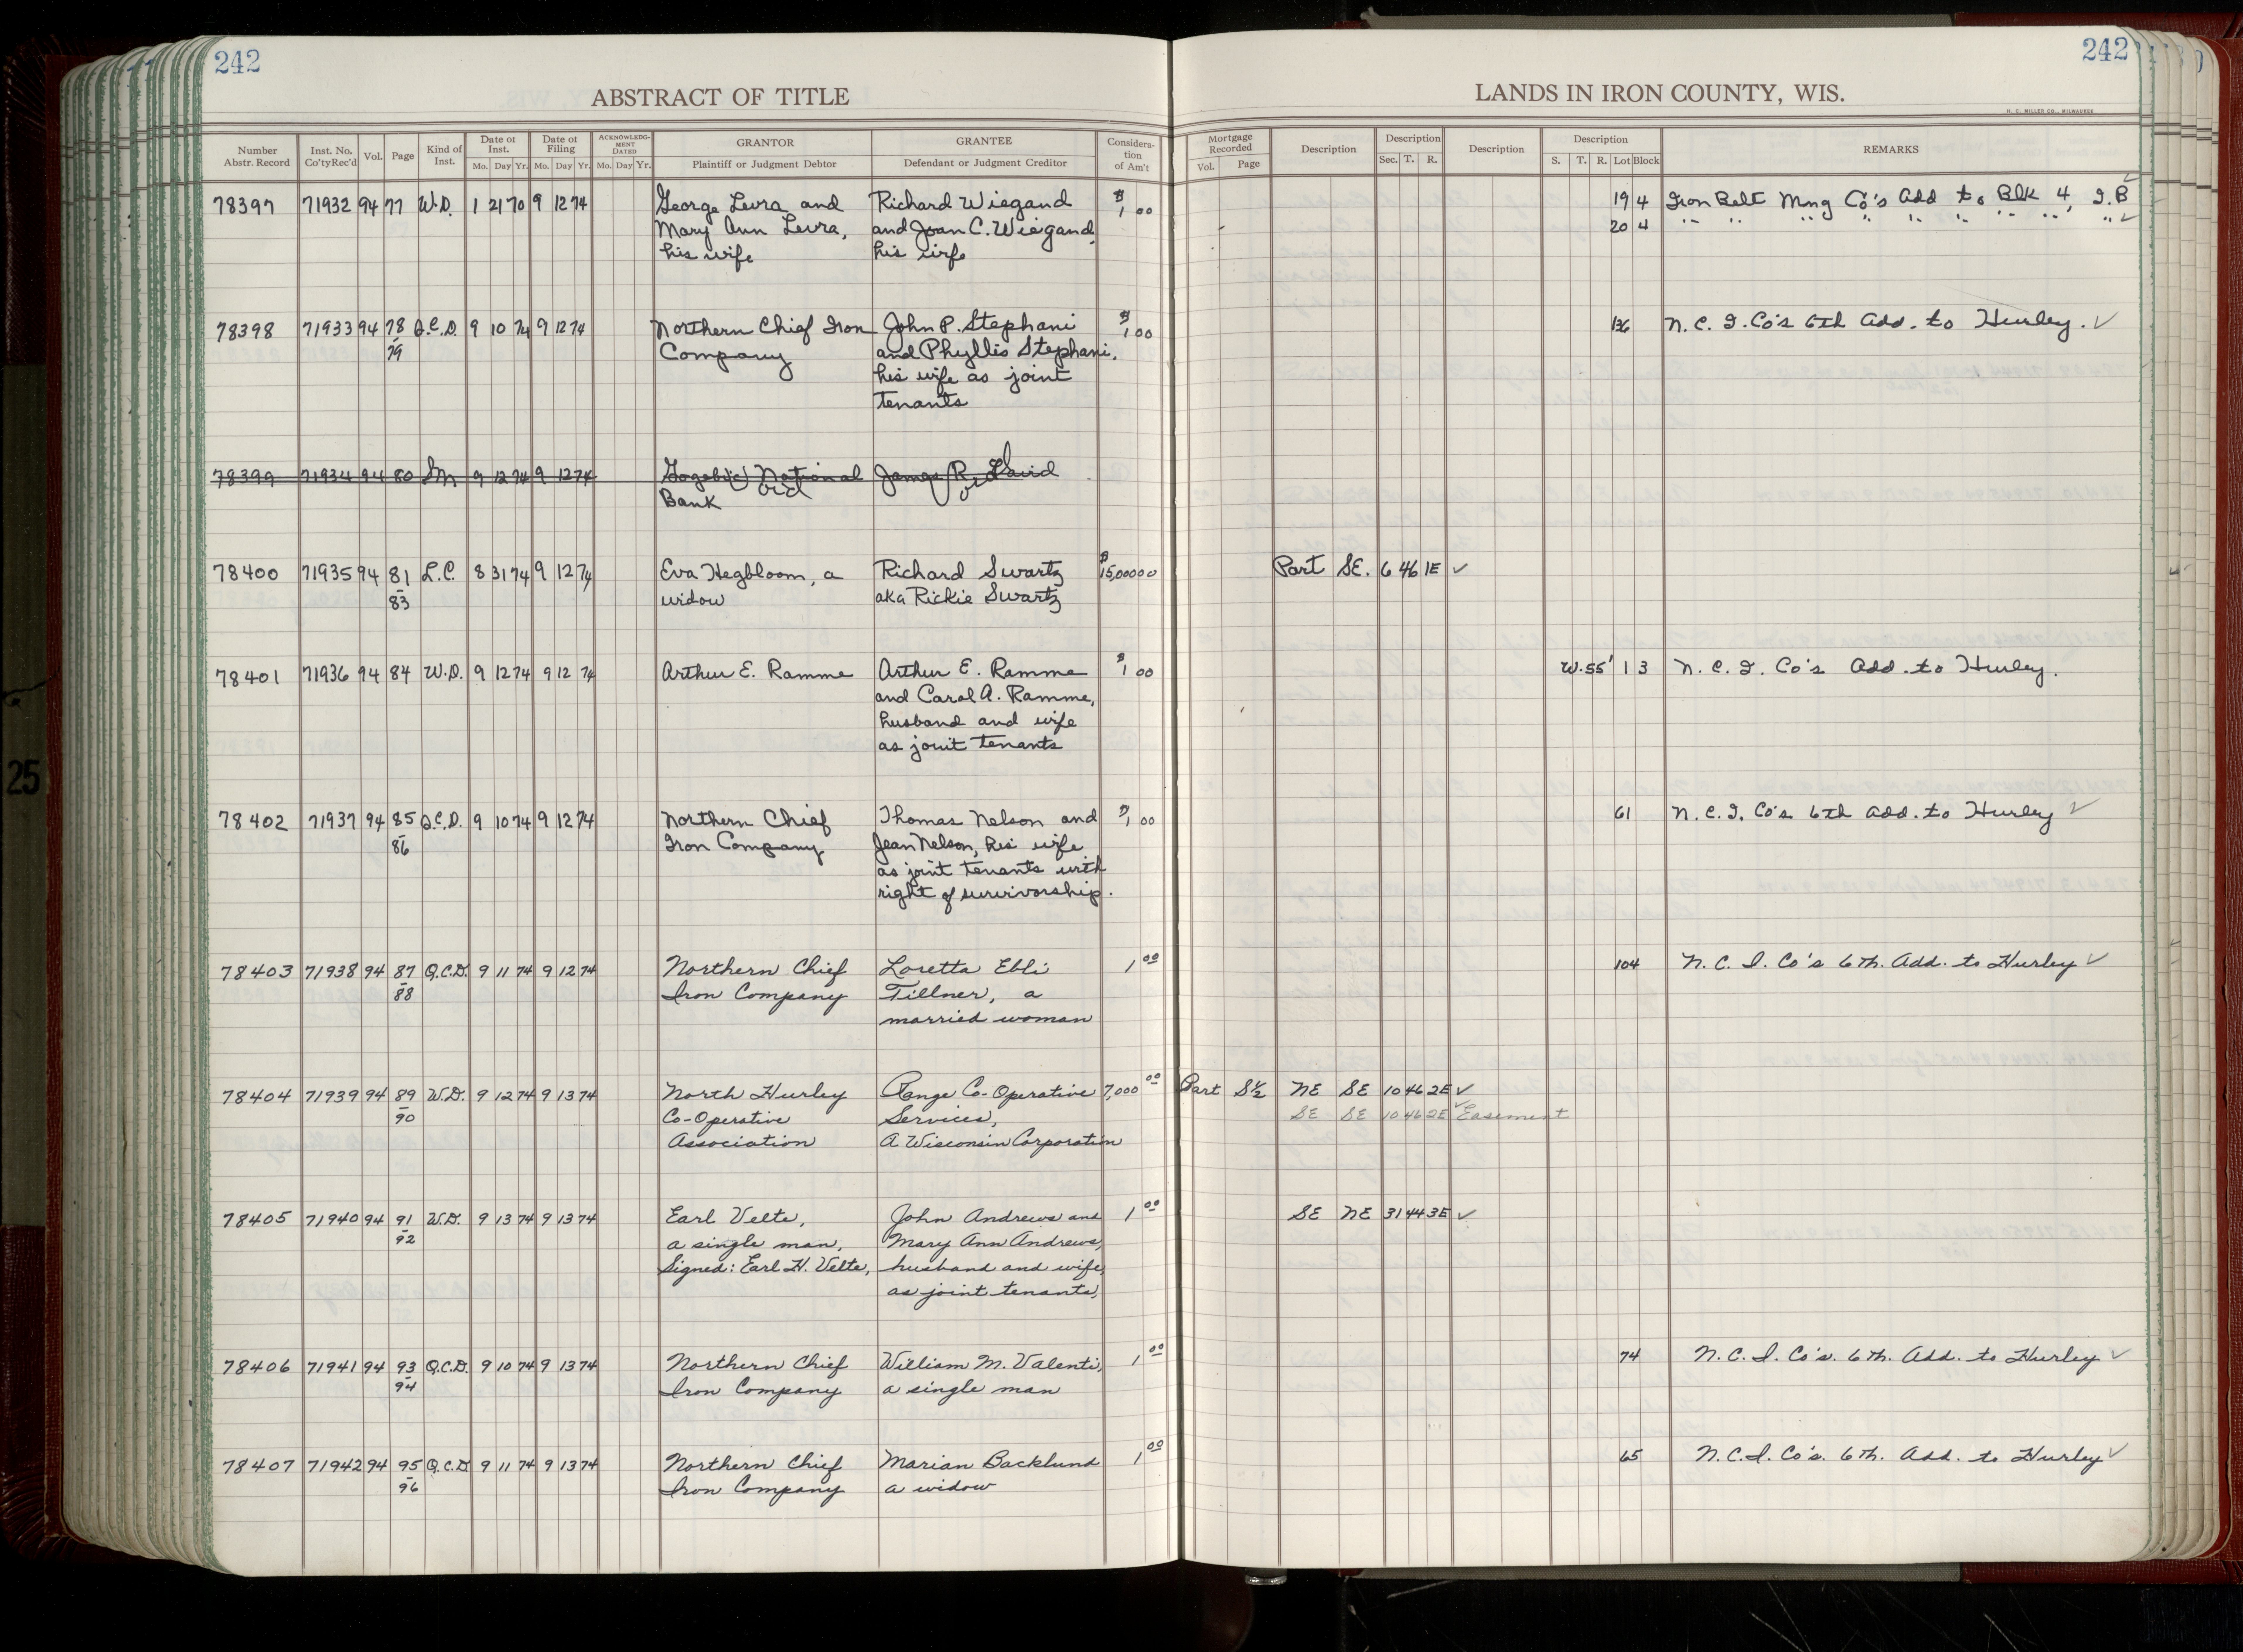 242
ABSTRACT OF TITLE
Number Abstr. Record | Inst. No. Co'tyRec'd | Vol. | Page | Kind of Inst. | Date of Inst. Mo. Day Yr. | Date of Filing Mo. Day Yr. | ACKNOWLEDGMENT DATED Mo. Day Yr. | GRANTOR Plaintiff or Judgment Debtor | GRANTEE Defendant or Judgment Creditor | Consideration of Am't
242
LANDS IN IRON COUNTY, WIS.
H. C. MILLER CO., MILWAUKEE
Mortgage Recorded Vol. Page | Description | Description Sec. T. R. | Description | Description S. T. R. Lot Block | REMARKS
78397 71932 94 77 W.D. 1 21 70 9 12 74 George Levra and Richard Wiegand $1 00 19 4 Iron Belt Mng Co's Add to Blk 4, I.B ✓
Mary Ann Levra, and Joan C. Wiegand, 20 4 " " " " " " " " " ✓
his wife his wife
78398 71933 94 78 Q.C.D. 9 10 74 9 12 74 Northern Chief Iron John P. Stephani $1 00 136 N. C. I. Co's 6th Add. to Hurley. ✓
79 Company and Phyllis Stephani,
his wife as joint
tenants
78399 71934 94 80 Sm 9 12 74 9 12 74 Gogebic National James R. David
Bank
78400 71935 94 81 L.C. 8 31 74 9 12 74 Eva Hegbloom, a Richard Swartz $15,000 00 Part SE. 6 46 1E ✓
83 widow aka Rickie Swartz
78401 71936 94 84 W.D. 9 12 74 9 12 74 Arthur E. Ramme Arthur E. Ramme $1 00 W.55' 1 3 N. C. I. Co's Add. to Hurley.
and Carol A. Ramme,
husband and wife
as joint tenants
78402 71937 94 85 Q.C.D. 9 10 74 9 12 74 Northern Chief Thomas Nelson and $1 00 61 N. C. I. Co's 6th Add. to Hurley ✓
86 Iron Company Jean Nelson, his wife
as joint tenants with
right of survivorship.
78403 71938 94 87 Q.C.D. 9 11 74 9 12 74 Northern Chief Loretta Ebli 1 00 104 N. C. I. Co's 6th. Add. to Hurley ✓
88 Iron Company Tillner, a
married woman
78404 71939 94 89 W.D. 9 12 74 9 13 74 North Hurley Range Co-Operative 7,000 00 Part S½ NE SE 10 46 2E ✓
90 Co-Operative Services, SE SE 10 46 2E ✓ Easement
Association A Wisconsin Corporation
78405 71940 94 91 W.D. 9 13 74 9 13 74 Earl Velte, John Andrews and 1 00 SE NE 31 44 3E ✓
92 a single man, Mary Ann Andrews,
Signed: Earl H. Velte, husband and wife,
as joint tenants,
78406 71941 94 93 Q.C.D. 9 10 74 9 13 74 Northern Chief William M. Valenti, 1 00 74 N. C. I. Co's. 6th. Add. to Hurley ✓
94 Iron Company a single man
78407 71942 94 95 Q.C.D 9 11 74 9 13 74 Northern Chief Marian Backlund 1 00 65 N.C.I. Co's. 6th. Add. to Hurley ✓
96 Iron Company a widow
25